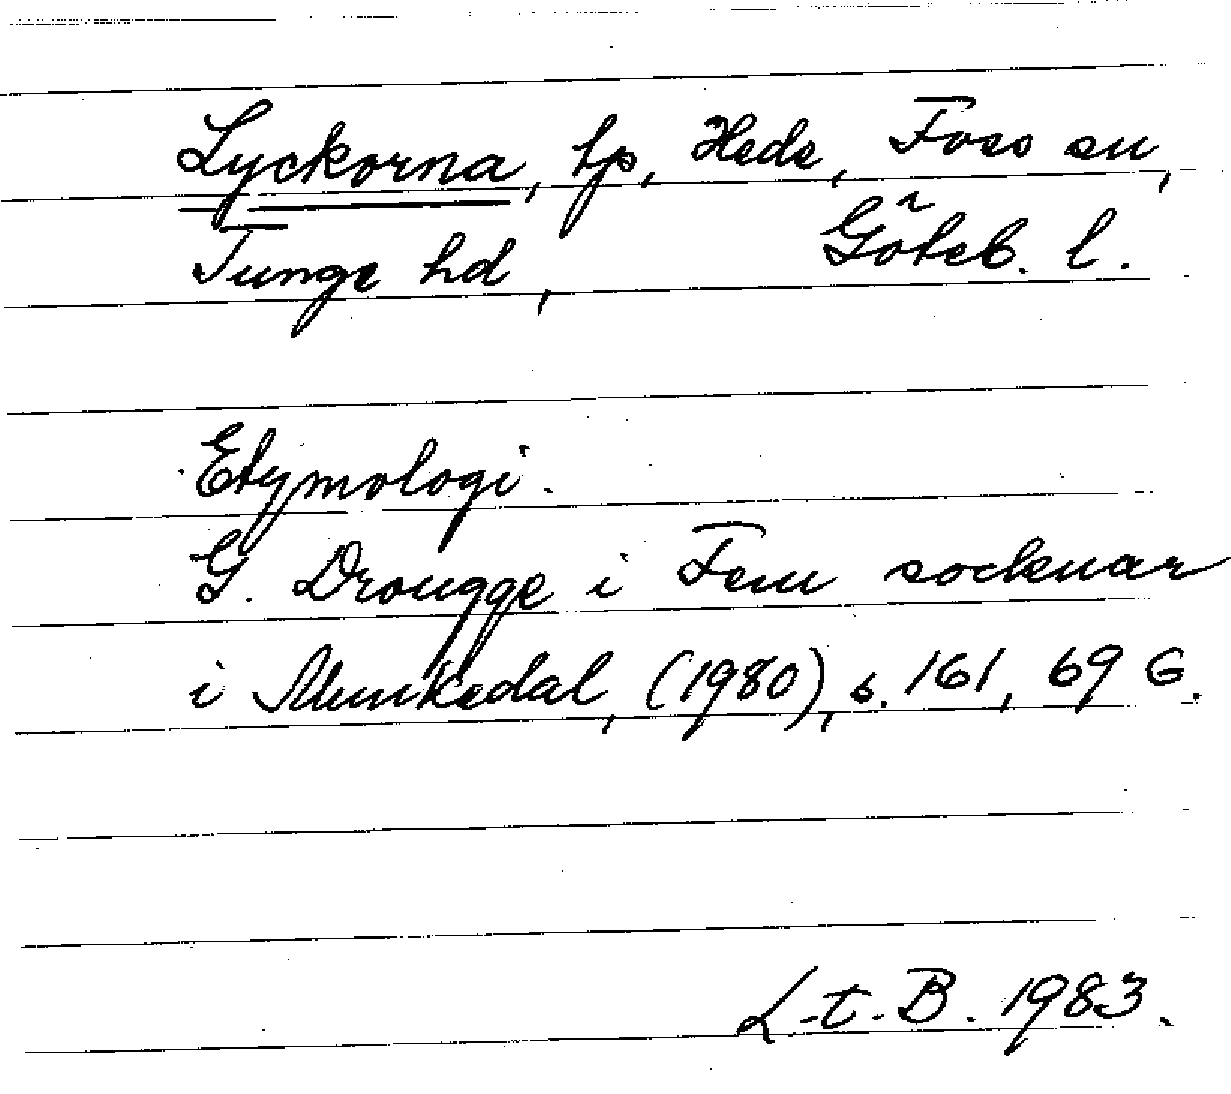 Lyckorna, hp, Hede, Foss sn,
Tunge hd, Göteb. l.
Etymologi.
G. Drougge i Fem socknar
i Munkedal, (1980), s. 161, 69 G.
L-t. B. 1983.